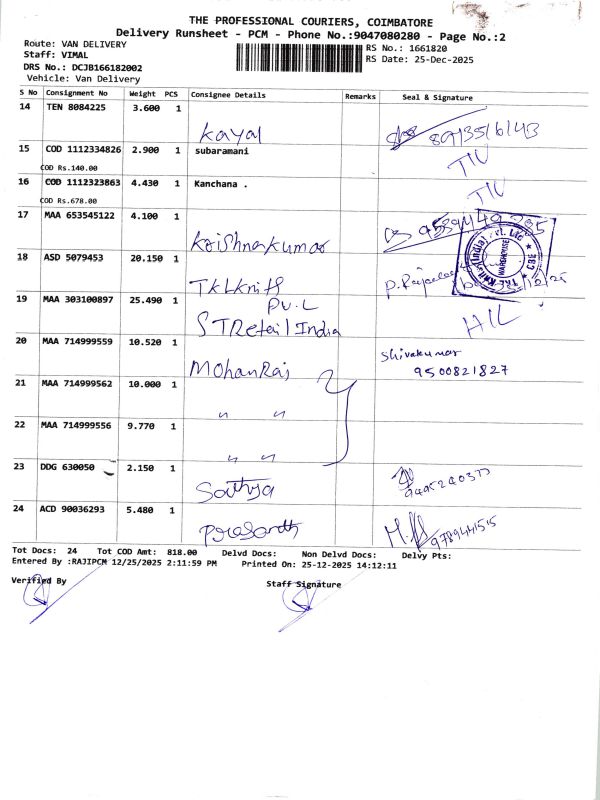 THE PROFESSIONAL COURIERS, COIMBATORE
Delivery Runsheet - PCM - Phone No.:9047080280 - Page No.:2
Route: VAN DELIVERY
Staff: VIMAL
DRS No.: DCJB166182002
Vehicle: Van Delivery
RS No.: 1661820
RS Date: 25-Dec-2025
S No Consignment No Weight PCS Consignee Details Remarks Seal & Signature
14 TEN 8084225 3.600 1
Kayal
15 COD 1112334826 2.900 1 subaramani
COD Rs.140.00
16 COD 1112323863 4.430 1 Kanchana .
COD Rs.678.00
17 MAA 653545122 4.100 1
Krishnakumar
18 ASD 5079453 20.150 1
TKLKnits
PV.L
19 MAA 303100897 25.490 1
STRetail India
20 MAA 714999559 10.520 1
MohanRaj Shivakumar
9500821827
21 MAA 714999562 10.000 1
" "
22 MAA 714999556 9.770 1
" "
23 DDG 630050 2.150 1
Sathya
24 ACD 90036293 5.480 1
Prasanth
Tot Docs: 24 Tot COD Amt: 818.00 Delvd Docs: Non Delvd Docs: Delvy Pts:
Entered By :RAJIPCM 12/25/2025 2:11:59 PM Printed On: 25-12-2025 14:12:11
Verified By Staff Signature